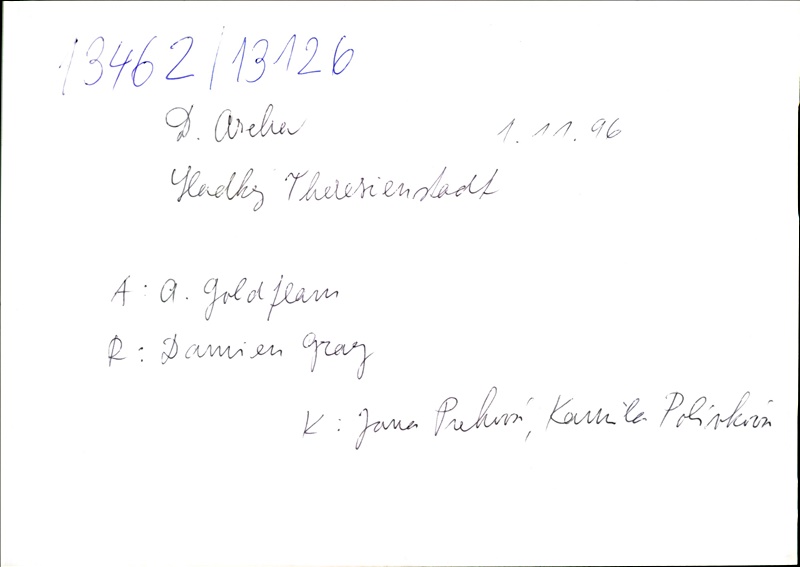 13462/13126
D. Archa 1.11.96
Sladký Theresienstadt
A: A. Goldflam
R: Damien Gray
K: Jana Preková, Kamila Polívková